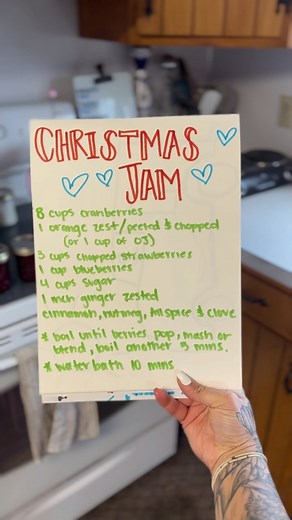 CHRISTMAS
JAM
8 cups cranberries
1 orange zest/peeled & chopped
(or 1 cup of OJ)
3 cups chopped strawberries
1 cup blueberries
4 cups sugar
1 inch ginger zested
cinnamon, nutmeg, allspice & clove
* boil until berries pop, mash or
blend, boil another 5 mins.
* water bath 10 mins